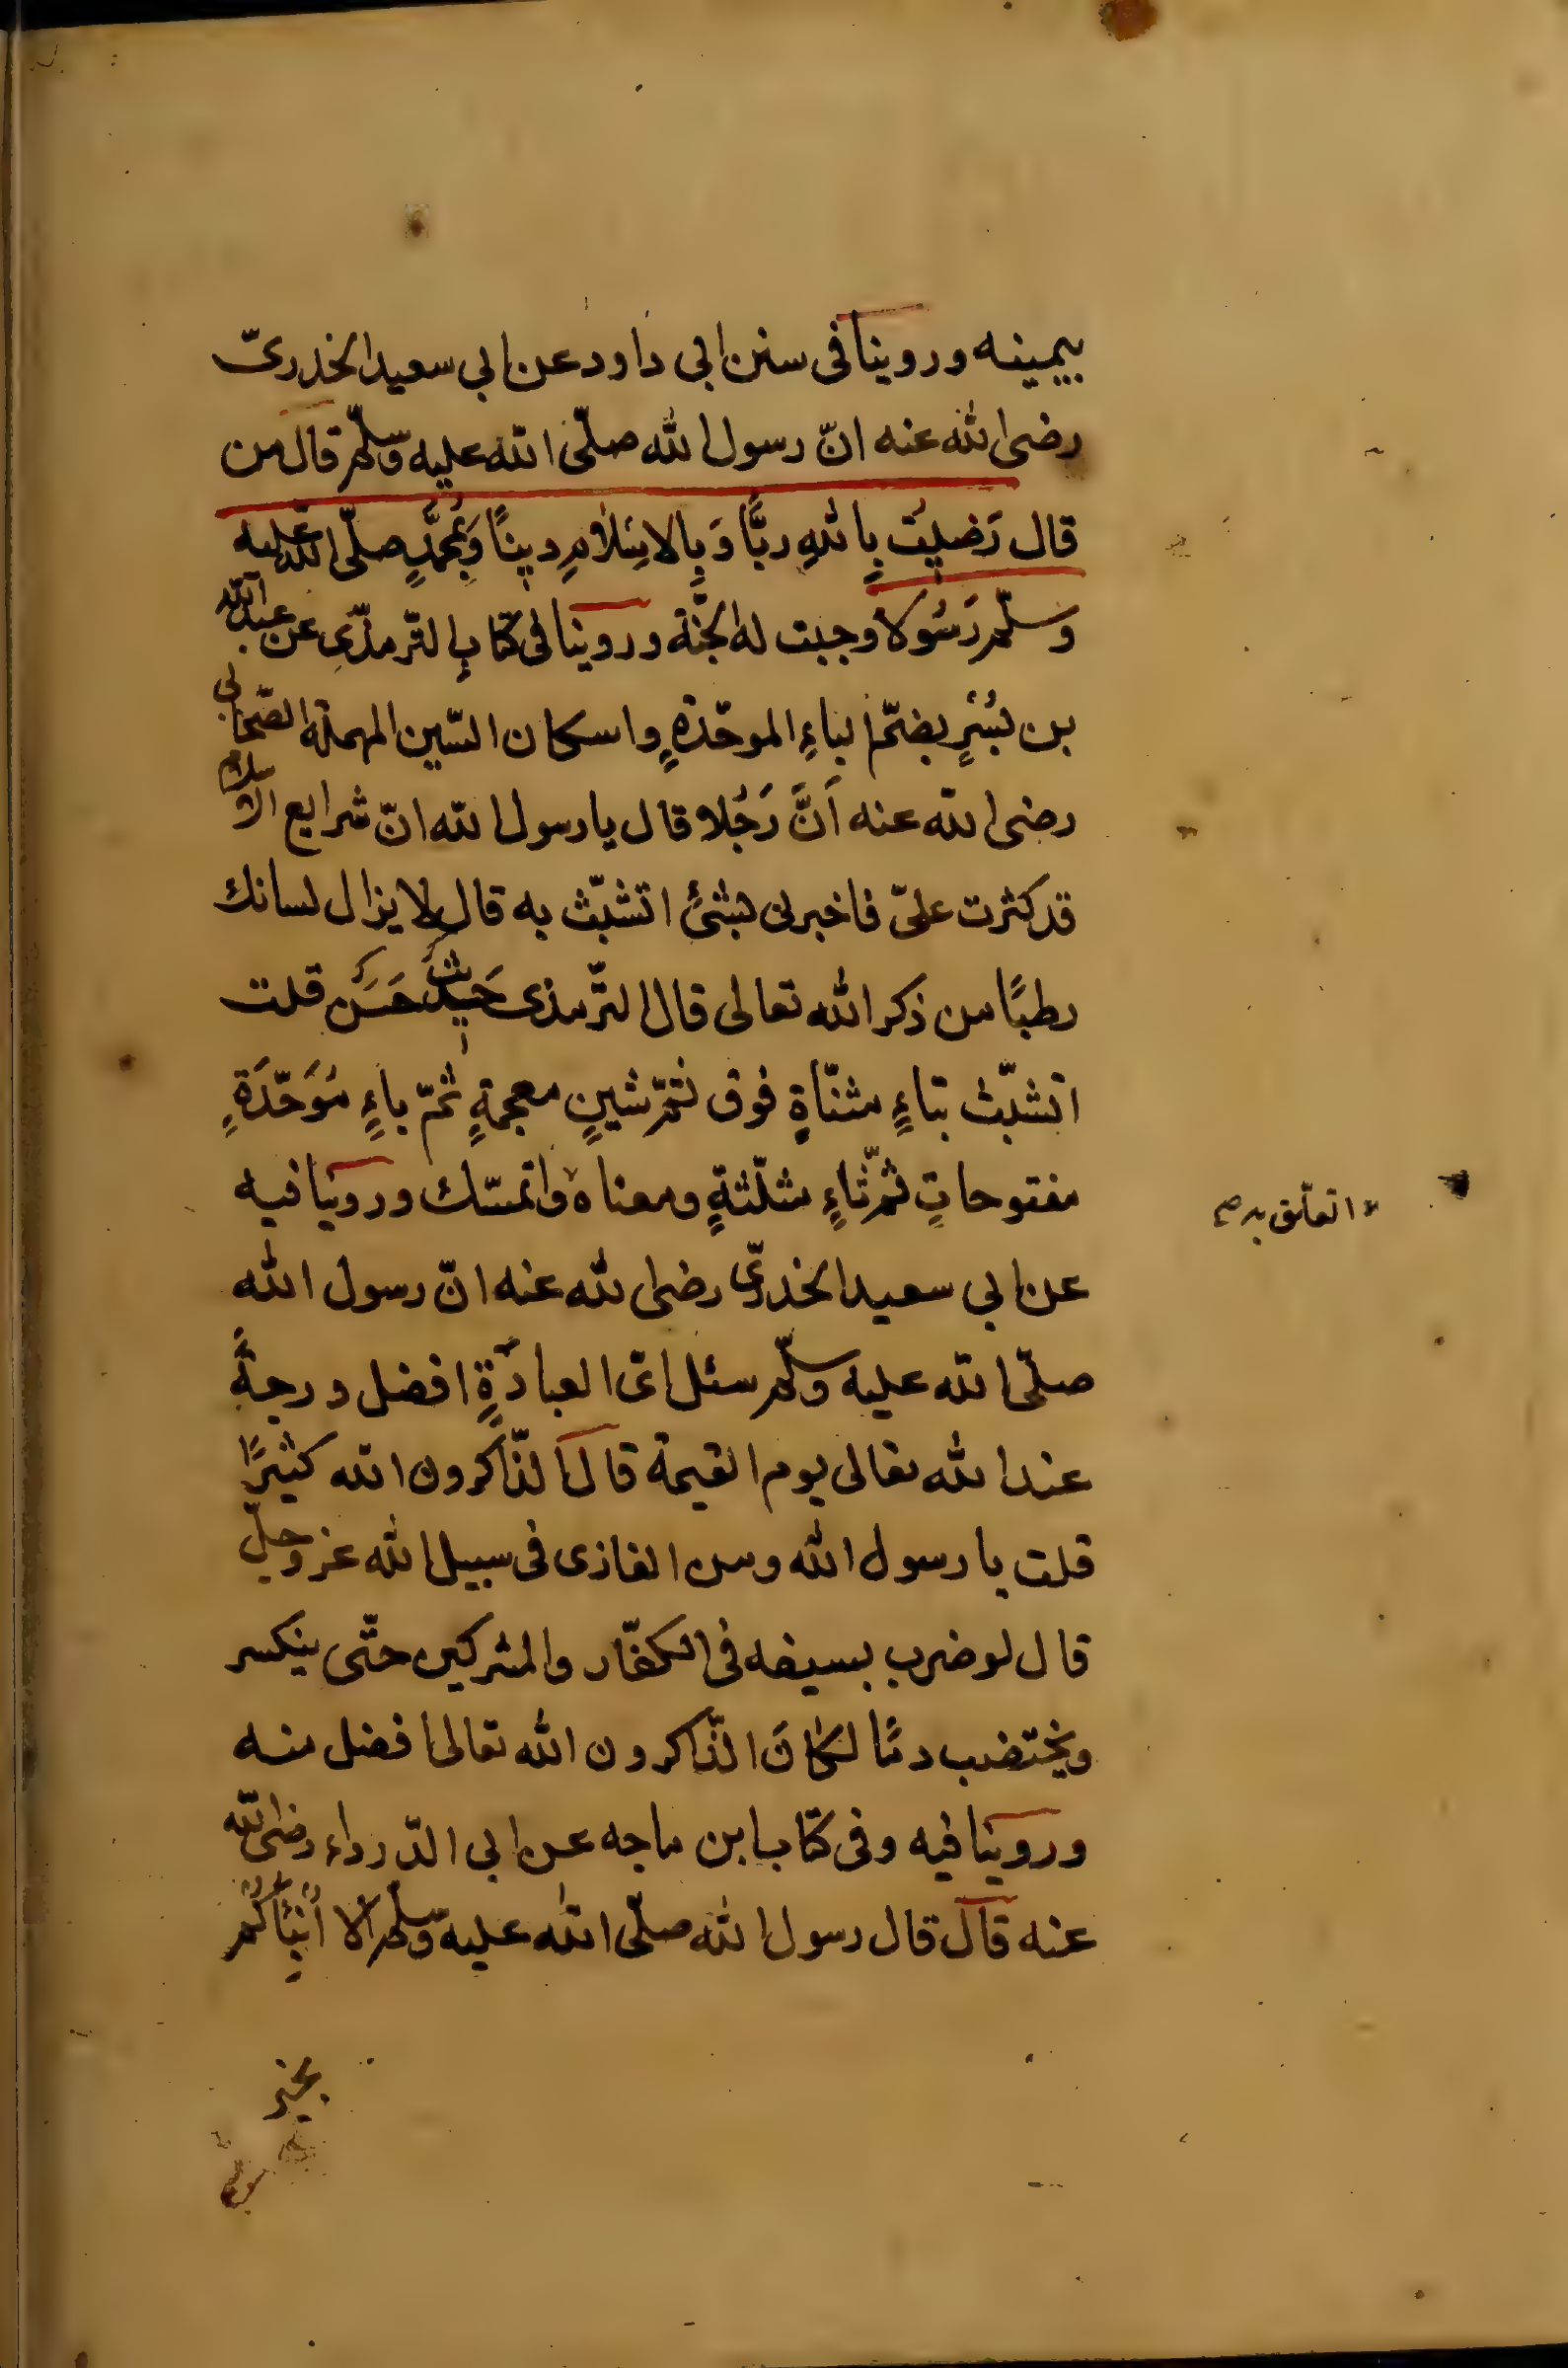 بيمينه وروينا فى سنن ابى داود عن ابي سعيد الخدرىّ
رضى الله عنه انّ رسول الله صلّى الله عليه وسلّم قال من
قال رَضيتُ بِاللهِ ربًّا وَبِالاسْلامِ دينًا وَبِمُحَمَّدٍ صلّى الله عليه
وسلّم رَسُولا وجبت له الجنّة وروينا فى كتابِ الترمذّىِ عن عبد الله
بن بُسْرٍ بضمّ الباءِ الموحّدةِ واسكان السّين المهملة الصّحابى
رضى الله عنه اَنَّ رَجُلا قال يا رسول الله انّ شرايع الاسلام
قد كثرت علىّ فاخبرنى بشئٍ اتشبّث به قال لا يزال لسانك
رطبًا من ذكر الله تعالى قال الترّمذى حَديثٌ حَسَنٌ قلت
اتشبّث بتاءٍ مثنّاةٍ فوق ثمّ شينٍ معجمةٍ ثمّ باءٍ مُوَحّدَةٍ
مفتوحاتٍ ثمّ ثاءٍ مثلّثةٍ ومعناه واتمسّك وروينا فيه
لا اتعلّق به صح
عن ابي سعيد الخدرّى رضى الله عنه انّ رسول الله
صلّى الله عليه وسلّم سئل اىّ العبادَةِ افضل درجةً
عند الله تعالى يوم القيمة قال الذّاكرون الله كثيرًا
قلت يا رسول الله ومن الغازى فى سبيل الله عز وجلّ
قال لو ضرب بسيفه فى الكفّار والمشركين حتّى ينكسر
ويختضب دمًا لكانَ الذّاكرون الله تعالى افضل منه
وروينا فيه وفى كتاب ابن ماجه عن ابي الدّرداء رضى الله
عنه قال قال رسول الله صلّى الله عليه وسلّم الا اُنَبِّئُكُم
بخير